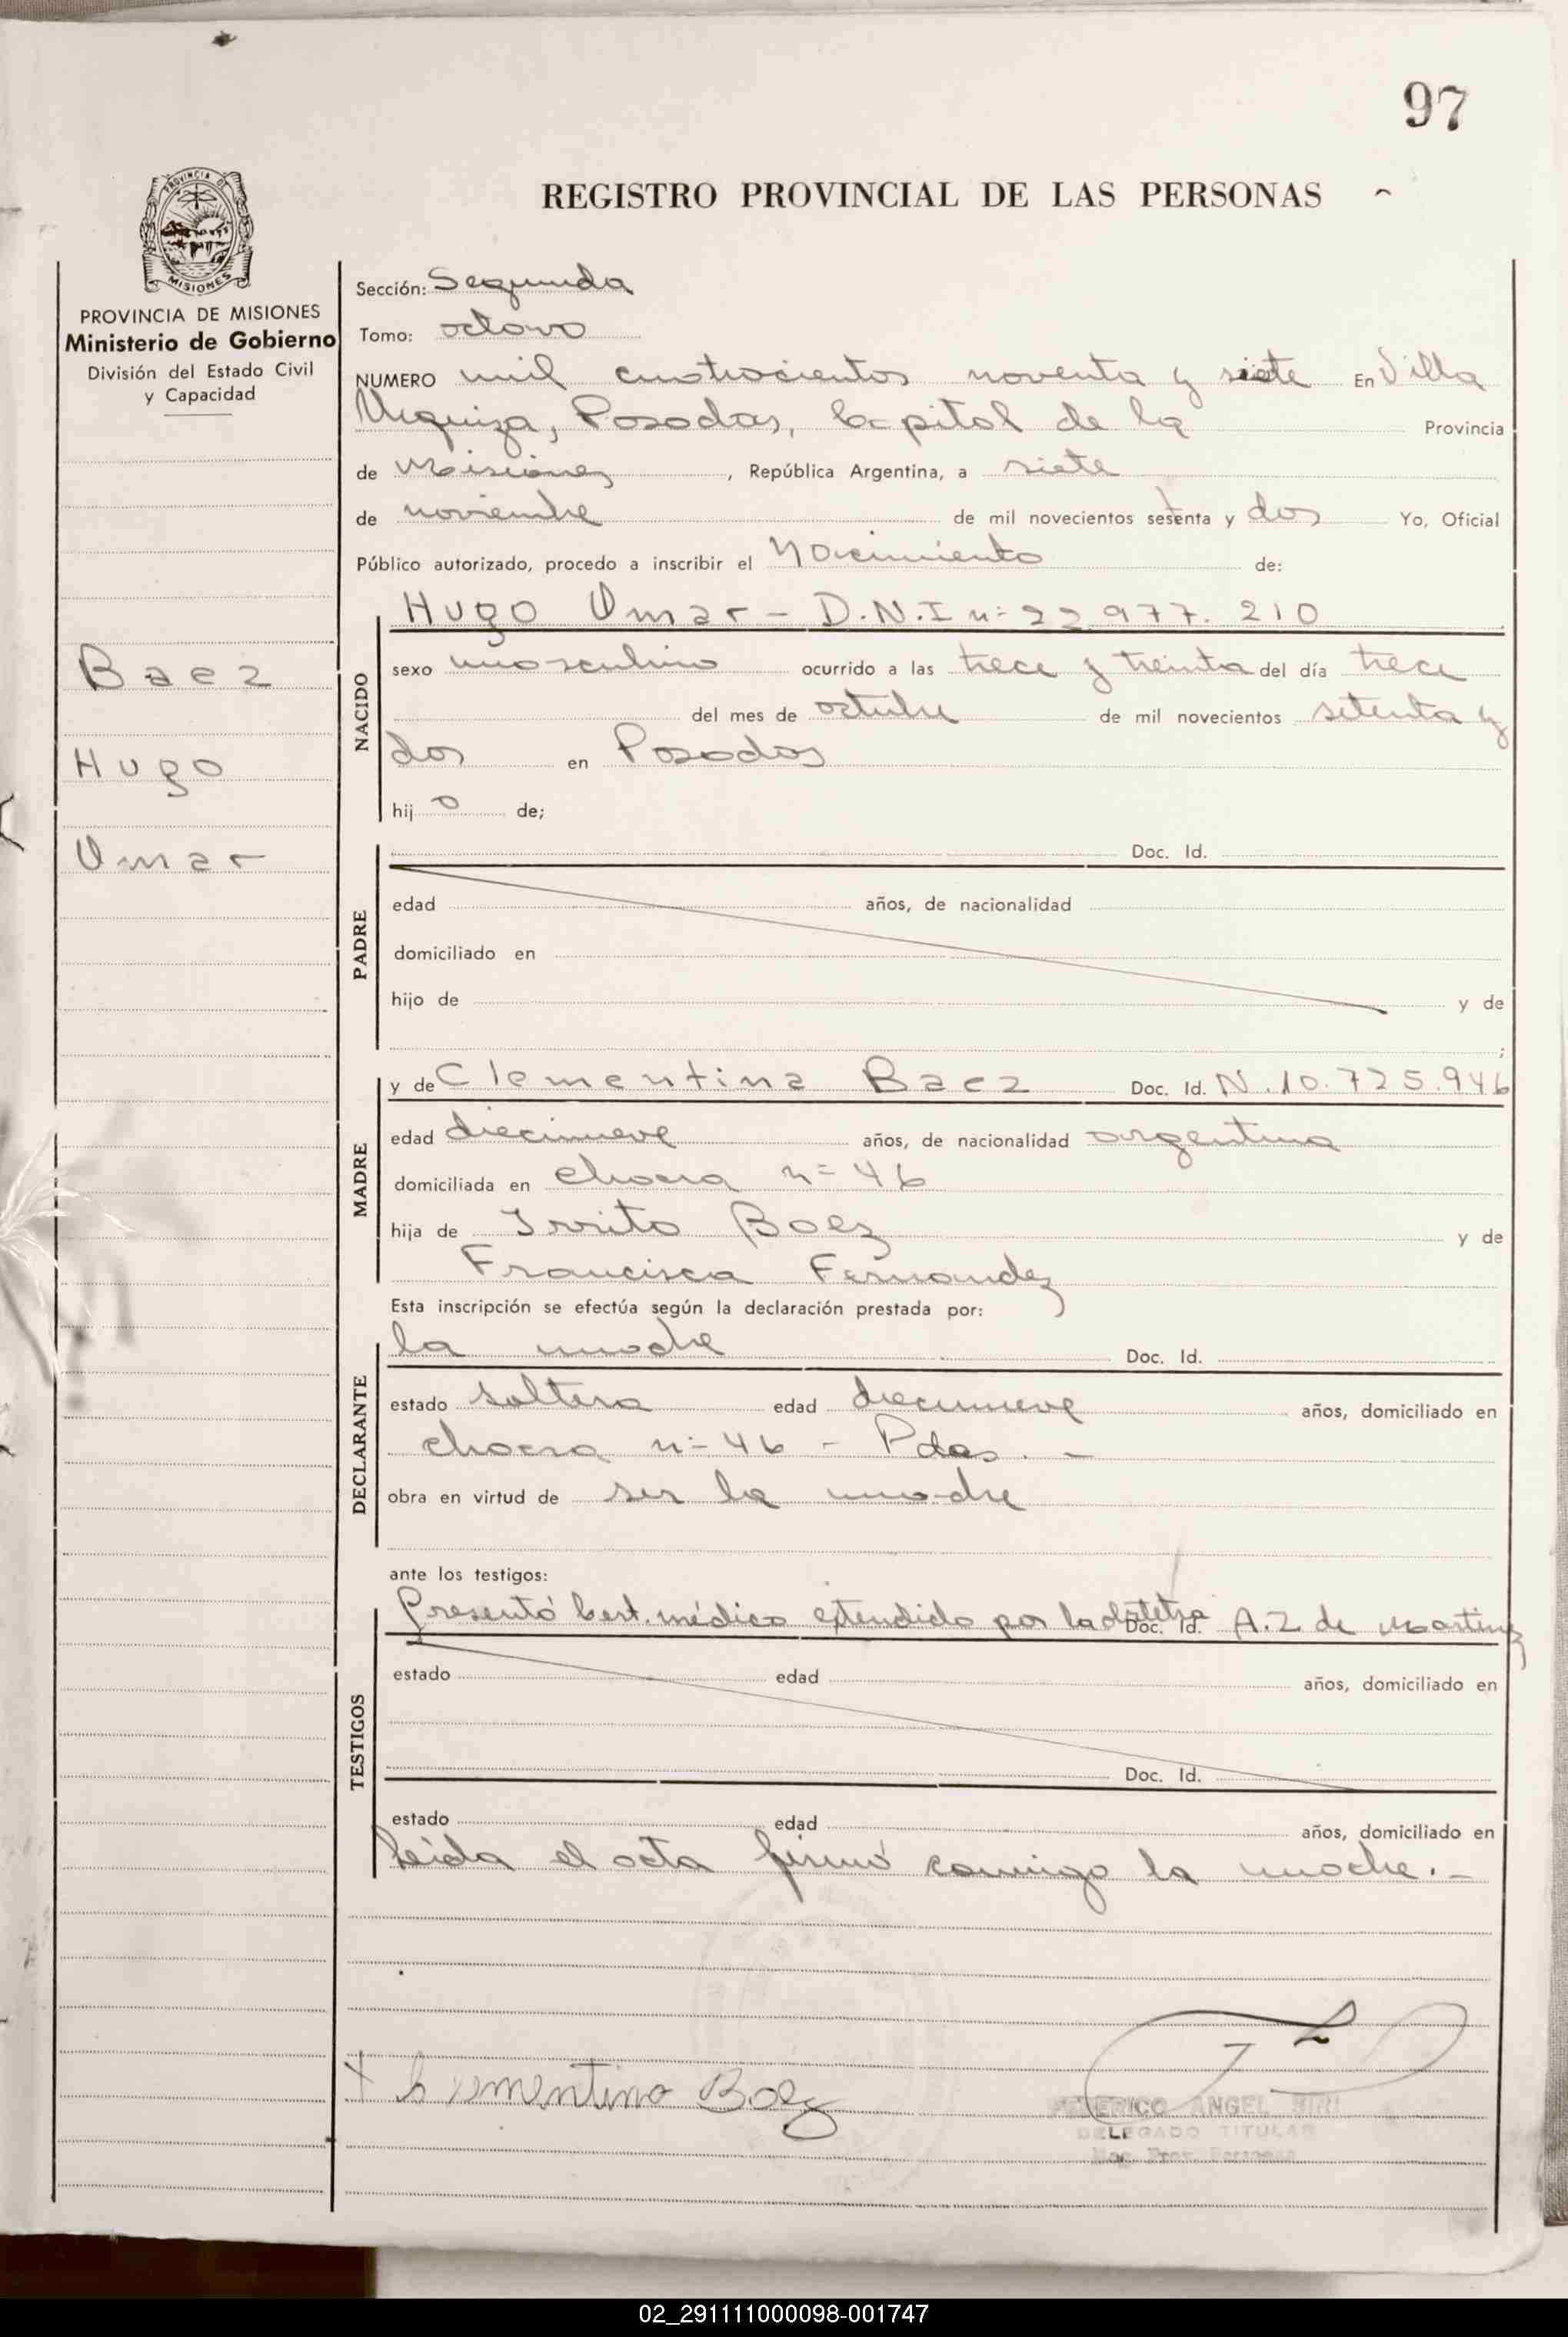 97
REGISTRO PROVINCIAL DE LAS PERSONAS
PROVINCIA DE MISIONES
Ministerio de Gobierno
División del Estado Civil
y Capacidad
Baez
Hugo
Omar
Sección: Segunda
Tomo: octavo
NUMERO mil cuatrocientos noventa y siete En Villa
Urquiza, Posadas, Capital de la Provincia
de Misiones, República Argentina, a siete
de noviembre de mil novecientos setenta y dos Yo, Oficial
Público autorizado, procedo a inscribir el Nacimiento de:
NACIDO
Hugo Omar - D.N.I nº 22.977.210
sexo masculino ocurrido a las trece y treinta del día trece
del mes de octubre de mil novecientos setenta y
dos en Posadas
hijo de;
PADRE
Doc. Id.
edad años, de nacionalidad
domiciliado en
hijo de y de
;
MADRE
y de Clementina Baez Doc. Id. N. 10.725.946
edad diecinueve años, de nacionalidad argentina
domiciliada en chacra nº 46
hija de Baez y de
Francisca Fernandez
Esta inscripción se efectúa según la declaración prestada por:
DECLARANTE
la madre Doc. Id.
estado soltera edad diecinueve años, domiciliado en
chacra nº 46 - Pdas. -
obra en virtud de ser la madre
ante los testigos:
TESTIGOS
Presentó Cert. médico extendido por la Doc. Id. A.Z de Martinez
estado edad años, domiciliado en
Doc. Id.
estado edad años, domiciliado en
Leida el acta firmó conmigo la madre. -
Clementina Baez
FEDERICO ANGEL SIRI
DELEGADO TITULAR
Reg. Prov. Personas
02_291111000098-001747